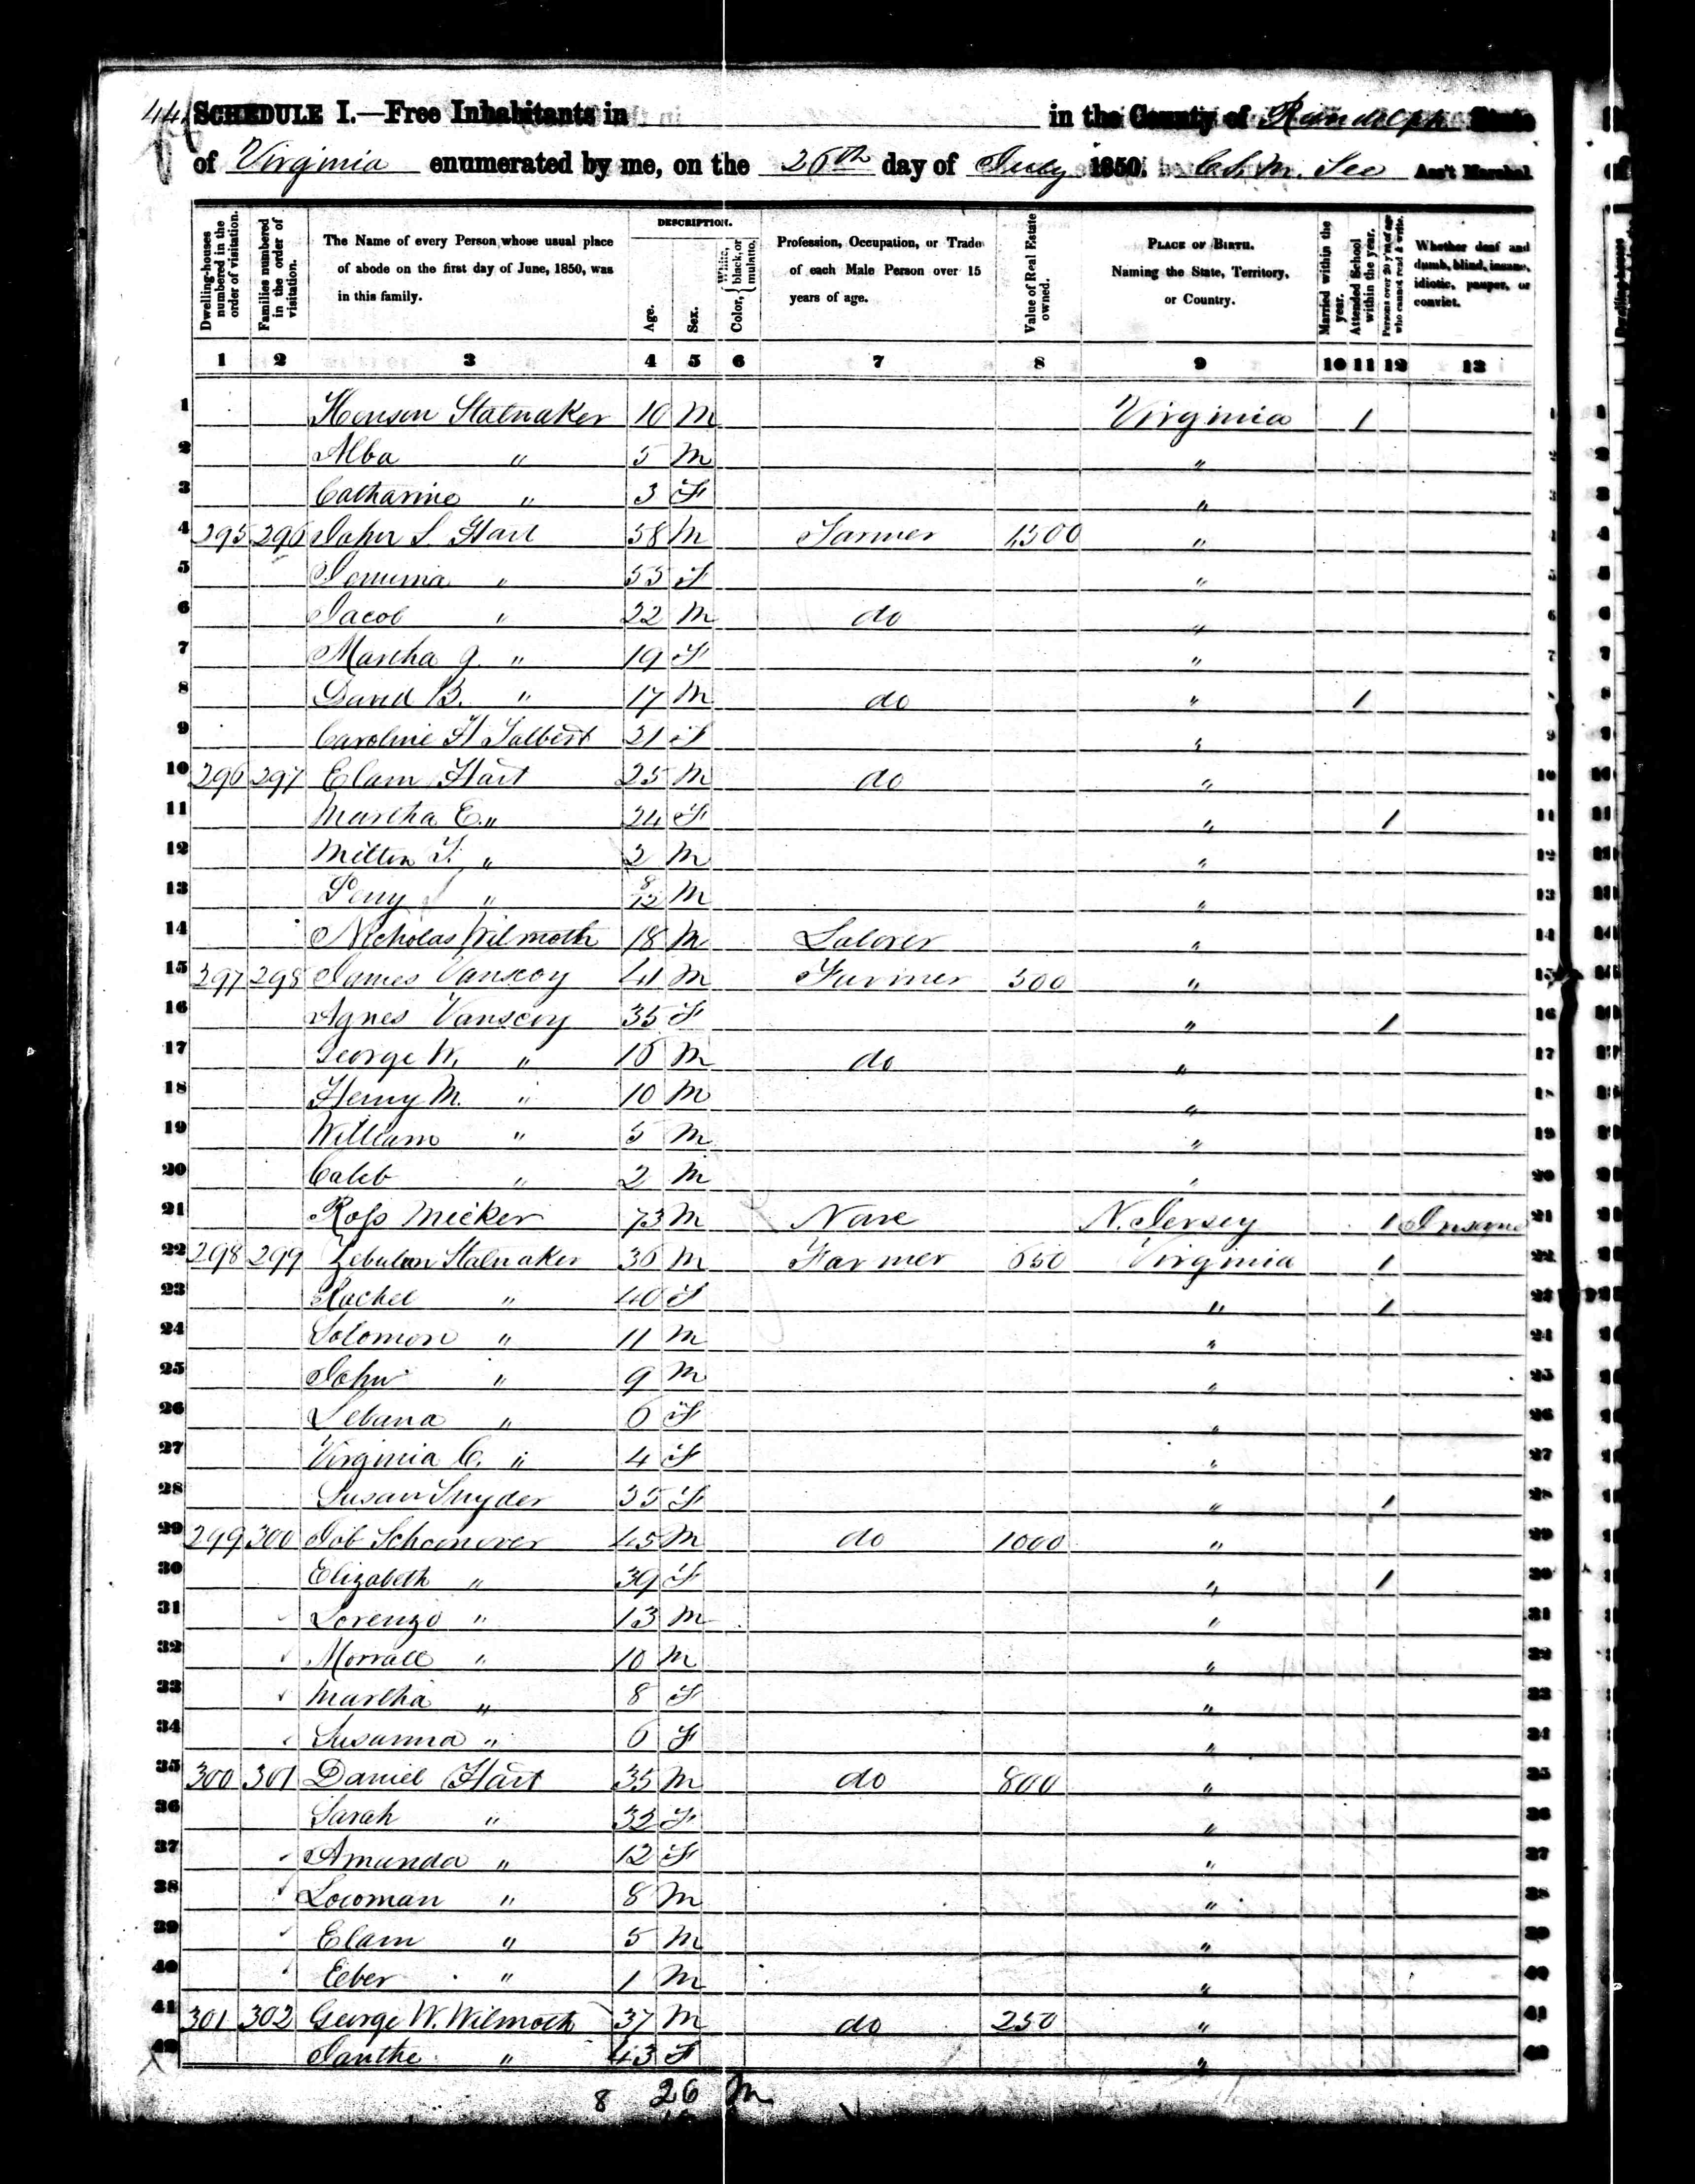 44
SCHEDULE I.—Free Inhabitants in in the County of Randolph State
of Virginia enumerated by me, on the 26th day of July 1850. See Ass't Marshal
Dwelling-houses numbered in the order of visitation.
Families numbered in the order of visitation.
The Name of every Person whose usual place of abode on the first day of June, 1850, was in this family.
DESCRIPTION.
Age.
Sex.
Color, White, black, or mulatto.
Profession, Occupation, or Trade of each Male Person over 15 years of age.
Value of Real Estate owned.
PLACE OF BIRTH. Naming the State, Territory, or Country.
Married within the year.
Attended School within the year.
Persons over 20 y'rs of age who cannot read & write.
Whether deaf and dumb, blind, insane, idiotic, pauper, or convict.
1 2 3 4 5 6 7 8 9 10 11 12 13
1 Stalnaker 10 M Virginia 1 1
2 Alba " 5 M " 2
3 Catharine " 3 F " 3
4 295 296 John S Hart 58 M Farmer 1500 " 4
5 Jemima " 55 F " 5
6 Jacob " 22 M do " 6
7 Martha J. " 19 F " 7
8 David B. " 17 M do " 1 8
9 Caroline H Talbert 21 F " 9
10 296 297 Elam Hart 25 M do " 10
11 Martha E. " 24 F " 1 11
12 Milton " 2 M " 12
13 Perry " 8/12 M " 13
14 Nicholas Wilmoth 18 M Laborer " 14
15 297 298 James Vanscoy 41 M Farmer 300 " 15
16 Agnes Vanscoy 35 F " 1 16
17 George W. " 16 M do " 17
18 Henry M. " 10 M " 18
19 William " 5 M " 19
20 Caleb " 2 M " 20
21 Ross Meeker 73 M None N. Jersey 1 Insane 21
22 298 299 Zebulon Stalnaker 36 M Farmer 650 Virginia 1 22
23 Rachel " 40 F " 1 23
24 Solomon " 11 M " 24
25 John " 9 M " 25
26 " 6 F " 26
27 Virginia C. " 4 F " 27
28 Susan Snyder 35 F " 1 28
29 299 300 Job Schoonover 45 M do 1000 " 29
30 Elizabeth " 39 F " 1 30
31 Lorenzo " 13 M " 31
32 Morrall " 10 M " 32
33 Martha " 8 F " 33
34 Susanna " 6 F " 34
35 300 301 Daniel Hart 35 M do 800 " 35
36 Sarah " 32 F " 36
37 Amanda " 12 F " 37
38 Looman " 8 M " 38
39 Elam " 5 M " 39
40 Eber " 1 M " 40
41 301 302 George W. Wilmoth 37 M do 250 " 41
42 Ianthe " 43 F " 42
8 26 M